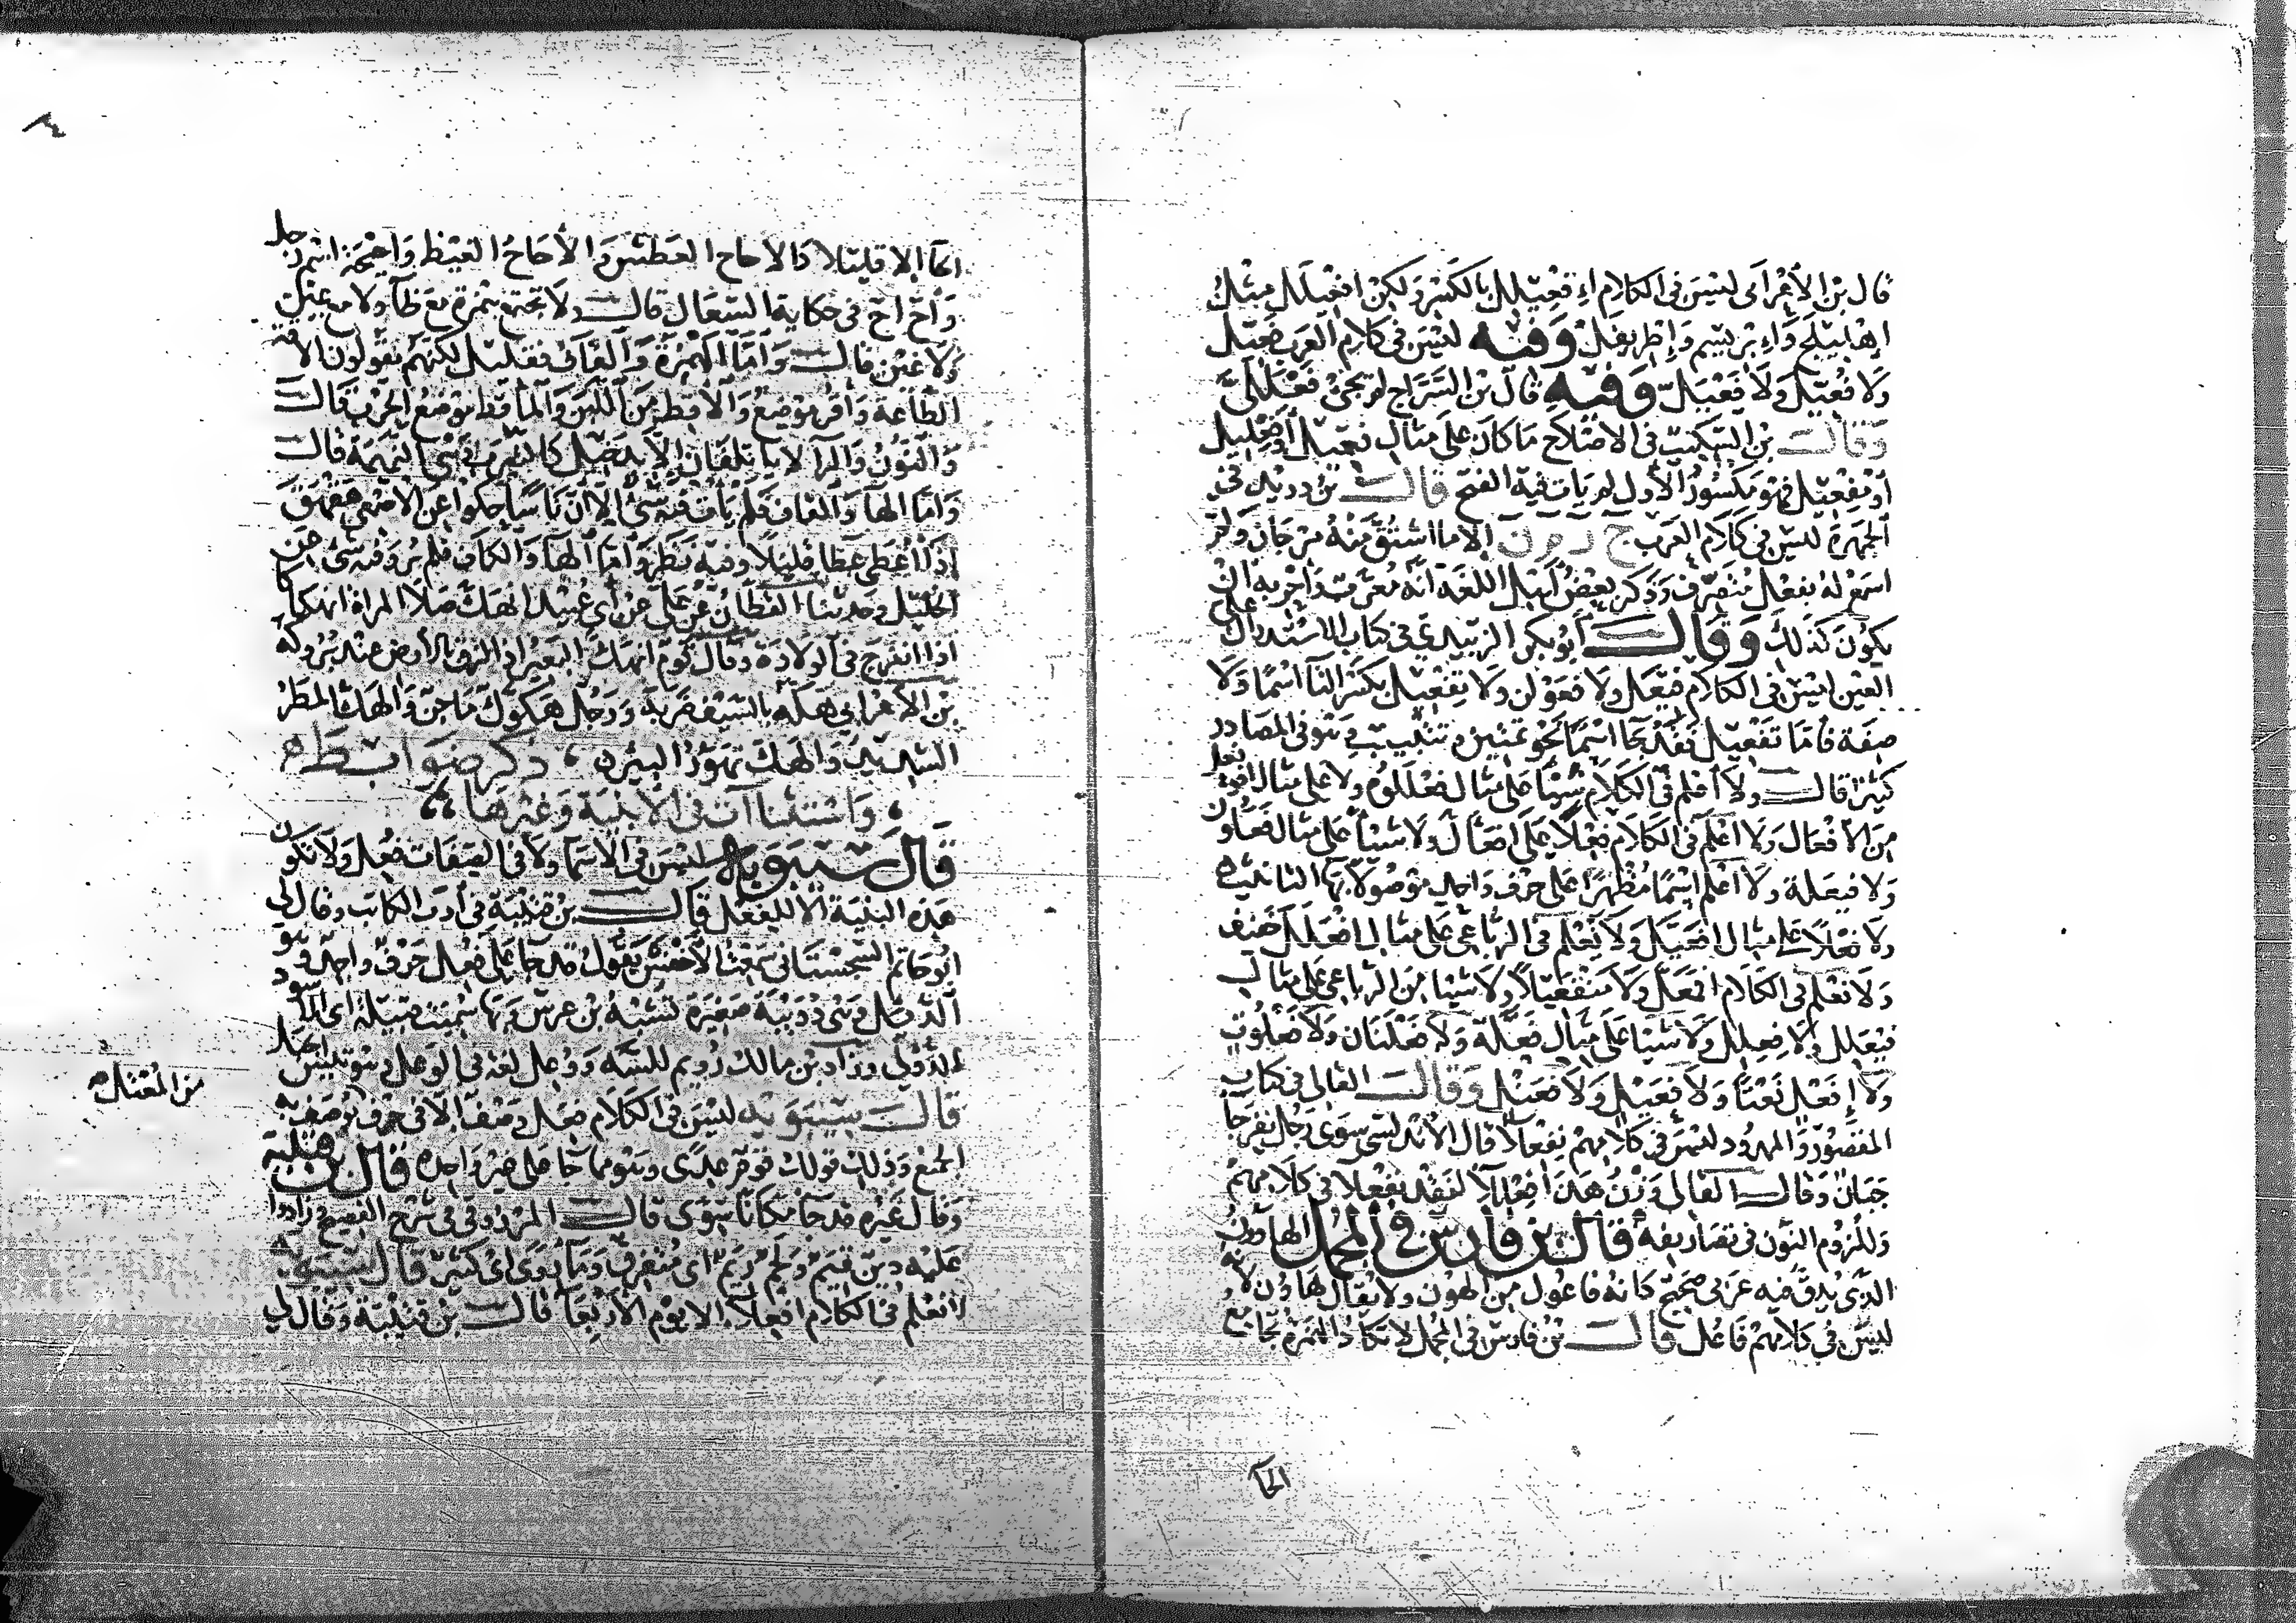 قال بن الأعرابي ليس في الكلام إفعيلِل بالكسر ولكن إفعيلَل مثل
إهليلج وإبريسم وإطريفل وفيه ليس في كلام العرب فعيل
ولا فُعيل ولا فعيل وفيه قال بن السراج لم يجئ فعللى
وقال بن السكيت في الاصلاح ما كان على مثال فعيل أو فعليل
أو مفعيل فهو مكسور الأول لم يات فيه الفتح قال بن دريد في
الجمهرة ليس في كلام العرب ج ر ن الا ما اشتق منه مرجان ولم
اسمع له بفعل متصرف وذكر بعض أهل اللغة انه معرب واحر به ان
يكون كذلك وقال أبو بكر الزبيدي في كتاب الاستدراك على
العين ليس في الكلام فيعل ولا فعولن ولا تفعيل بكسر التا اسما ولا
صفة فأما تفعيل فقد جا اسما نحو تمتين وتنبيت وهو في المصادر
كثير قال ولا أعلم في الكلام شيئا على مثال فعللوم ولا على مثال
من الأفعال ولا أعلم في الكلام فعلا على افعال ولا شيئا على مثال فعاون
ولا فيعلة ولا أعلم اسما مظهرا على حرف واحد موصولا بها التانيث
ولا على مثال افعيل ولا نعلم في الرباعي على مثال افعلل خفيف
ولا نعلم في الكلام افعل ولا ولا شيئا من الرباعي على مثال
فيعلل ولا فعلل ولا شيئا على مثال فعلة ولا فعلنان ولا فعلوت
ولا إفعل نعتا ولا فعيل ولا فعنل وقال القالي في كتاب
المقصور والممدود ليس في كلامهم نفعلا قال الاندلسي سوى رجل نفرجا
جبان وقال القالي وزن هذا لفقد نفعلا في كلامهم
وللزوم النون في تصاريفه قال بن فارس في المجمل الهاوون
الذي يدق فيه عربي صحيح كانه فاعول من الهون ولا يقال هاون لانه
ليس في كلامهم فاعل قال بن فارس في المجمل لا تكاد الهمزة تجامع
الحا
الحا الا قليلا والاحاح العطش والأحاح الغيظ واحيحة اسم رجل
وأح اح في حكاية السعال قال ولا تجتمع همزة مع ظا ولا مع عين
ولا غين قال وأما الهمزة والقاف فقليل لكنهم يقولون الاقه
الطاعة وأقر موضع والأقط من اللبن والمأقط موضع الحرب قال
والنون والرا لا يأتلفان الا بدخيل كالنيرب وهي النميمة قال
وأما الها والقاف فلم يأت فيه شي إلا أن ناسا حكوا عن الاصمعي هقهق
إذا أعطى عطا قليلا وفيه نظر وأما الها والكاف فلم يرو فيه شي عن
الخليل وحدثنا القطان عن علي عن أبي عبيد انهك صلا المراة انهكاكا
اذا انفرج في الولادة وقال قوم انهك البعير اذا لزق بالأرض عند بروكه
بن الأعرابي هكه بالسيف ضربه ورجل هكوك ماجن والهك المطر
الشديد والهك تهور البئر ، ذكر ضوابط
، واستثناآت في الأبنية وغيرها ،،
قال سيبويه ليس في الأسما ولا في الصفات فُعِل ولا تكون
هذه البنية الا للفعل قال بن قتيبة في أدب الكاتب وقال لي
ابو حاتم السجستاني سمعت الأخفش يقول قد جا على فُعِل حرف واحد وهو
الدئل وهي دويبة صغيرة تشبه بن عرس وبها سميت قبيلة أبي الأسود
الدؤلي وزاد بن مالك رُئم للسه ووعل لغة في الوعل
قال سيبويه ليس في الكلام فعل وصفا إلا في حرف يوصف به
الجمع وذلك قولك قوم عدى وهو مما جا على غير واحده قال بن قتيبة
وقال غيره قد جا مكانا سوى قال المرزوقي في شرح الفصيح وزادوا
عليه دين قيم ولحم زيم اي متفرق وما روى اي كثير قال سيبويه
لا نعلم في الكلام افعلا الا يوم الأربعا قال بن قتيبة وقال لي